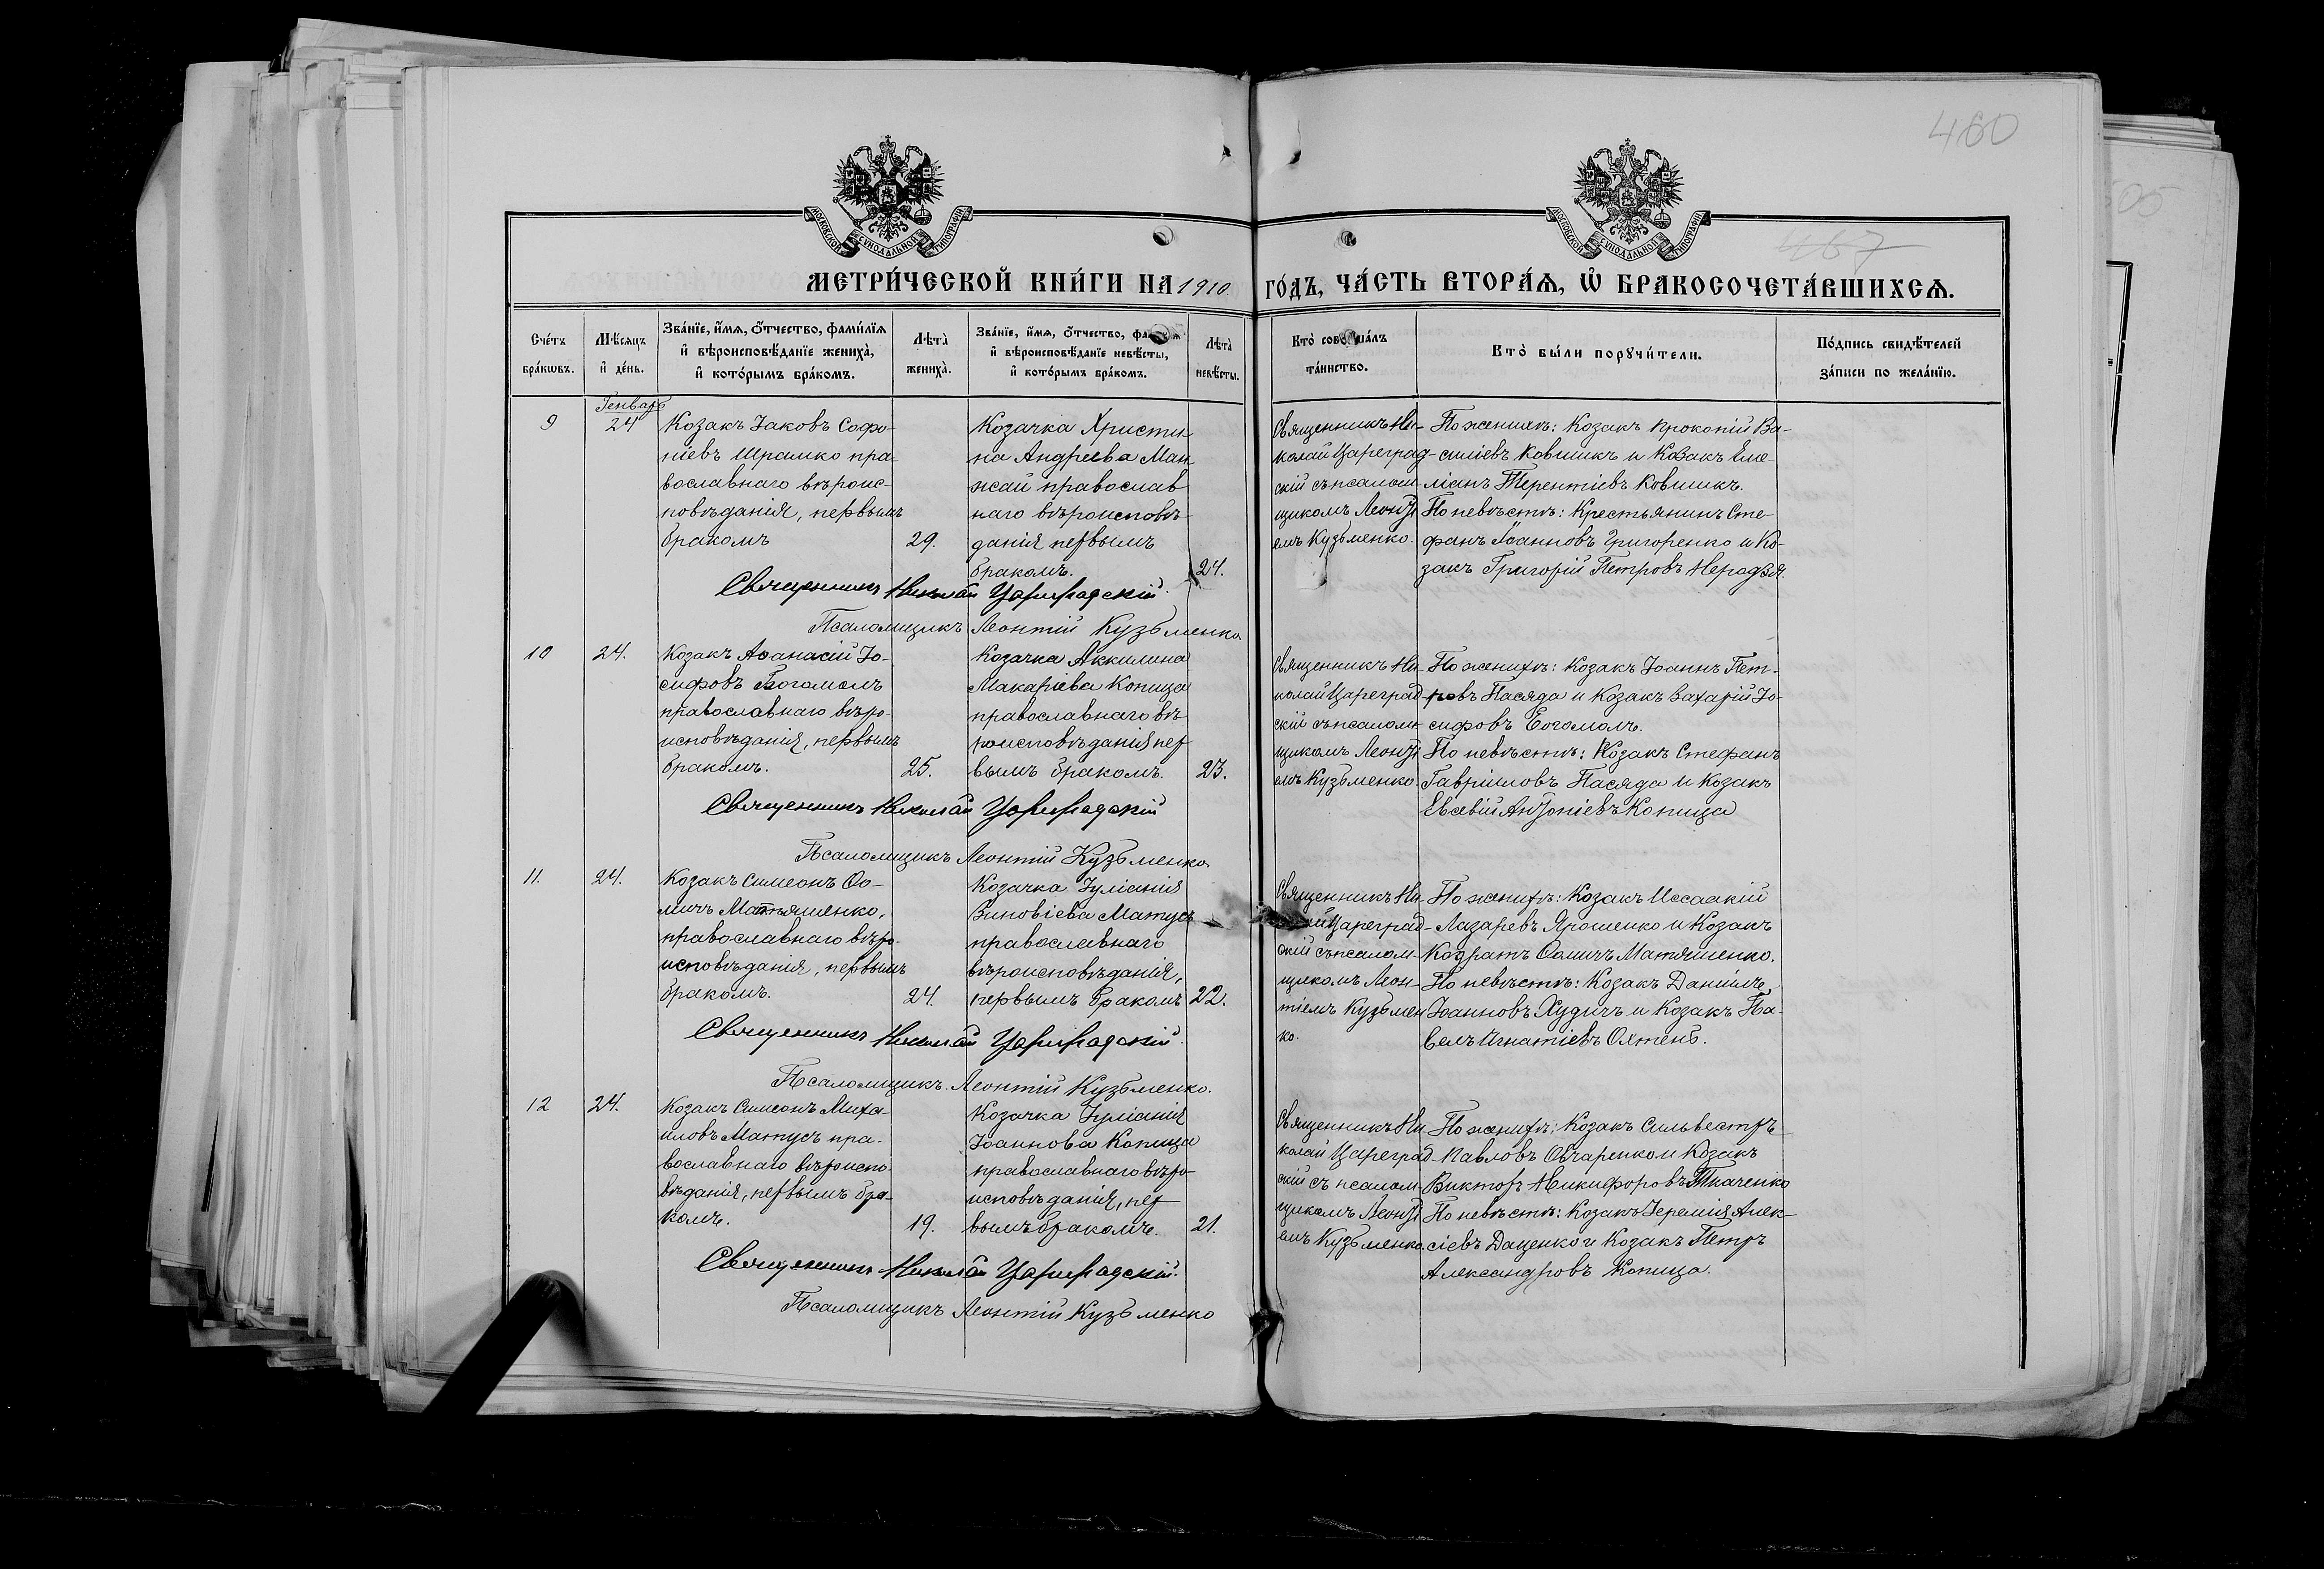 460
467
МОСКОВСКОЙ СѴНОДАЛЬНОЙ ТИПОГРАФІИ
МОСКОВСКОЙ СѴНОДАЛЬНОЙ ТИПОГРАФІИ
МЕТРИ́ЧЕСКОЙ КНИ́ГИ НА 1910 ГО́ДЪ, ЧА́СТЬ ВТОРА́Ѧ, Ѡ҆ БРАКОСОЧЕТА́ВШИХСѦ.
Сче́тъ
бра́кѡвъ.
Мѣ́сѧцъ
и҆ де́нь.
Зва́нїе, и҆́мѧ, ѻ҆́тчество, фами́лїѧ
и҆ вѣроисповѣ́данїе жениха̀,
и҆ кото́рымъ бра́комъ.
Лѣта̀
жениха̀.
Зва́нїе, и҆́мѧ, ѻ҆́тчество,
и҆ вѣроисповѣ́данїе невѣ́сты,
и҆ кото́рымъ бра́комъ.
Лѣта̀
невѣ́сты.
Кто̀
та́инство.
Кто̀ бы́ли порꙋчи́тели.
По́дпись свидѣ́телей
за́писи по жела́нїю.
9
Генварь
24
Козакъ Іаковъ Софо-
ніевъ Шрамко пра-
вославнаго вѣроис-
повѣданія, первымъ
бракомъ
29.
Козачка Христи-
на Андреева Ман
жай православ
наго вѣроисповѣ-
данія первымъ
бракомъ.
24.
Священникъ Ни-
колай Цареград-
скій съ псалом-
щикомъ Леонті
емъ Кузьменко.
По женихѣ: Козакъ Прокопій Ва-
силіевъ Ковшикъ и Козакъ Еме-
ліанъ Терентіевъ Ковшикъ.
По невѣстѣ: Крестьянинъ Сте-
фанъ Іоанновъ Григоренко и Ко-
закъ Григорій Петровъ
Священникъ Николай Цареградскій.
Псаломщикъ Леонтій Кузьменко
10
24.
Козакъ Аѳанасій Іо-
сифовъ Богомолъ
православнаго вѣро-
исповѣданія, первымъ
бракомъ.
25.
Козачка Аккилина
Макаріева Копица
православнаго вѣ
роисповѣданія пер
вымъ бракомъ.
23.
Священникъ Ни
колай Цареград-
скій съ псалом-
щикомъ Леонті
емъ Кузьменко.
По женихѣ: Козакъ Іоаннъ Пет-
ровъ Пасяда и Козакъ Захарій Іо-
сифовъ Богомолъ.
По невѣстѣ: Козакъ Стефанъ
Гавріиловъ Пасяда и Козакъ
Евсевій Антоніевъ Копица
Священникъ Николай Цареградскій
Псаломщикъ Леонтій Кузьменко
11.
24.
Козакъ Симеонъ Ѳо-
мичъ Матяшенко,
православнаго вѣро-
исповѣданія, первымъ
бракомъ.
24.
Козачка Іуліанія
Зиновіева Матусъ
православнаго
вѣроисповѣданія,
первымъ бракомъ
22.
Священникъ Ни-
Цареград-
скій съ псалом-
щикомъ Леон-
тіемъ Кузьмен
ко.
По женихѣ: Козакъ Иссаакій
Лазаревъ Ярошенко и Козакъ
Кодратъ Ѳомичъ Матяшенко.
По невѣстѣ: Козакъ Даніилъ
Іоанновъ Худичъ и Козакъ Па-
велъ Игнатіевъ
Священникъ Николай Цареградскій.
Псаломщикъ Леонтій Кузьменко.
12
24.
Козакъ Симеонъ Миха-
иловъ Матусъ пра-
вославнаго вѣроиспо-
вѣданія, первымъ бра-
комъ.
19.
Козачка Іуліанія
Іоаннова Копица
православнаго вѣро-
исповѣданія, пер
вымъ бракомъ.
21.
Священникъ Ни
колай Цареград-
скій съ псалом-
щикомъ Леонті
емъ Кузьменко.
По женихѣ: Козакъ Сильвестръ
Павловъ Овчаренко и Козакъ
Викторъ Никифоровъ Ткаченко
По невѣстѣ: Козакъ Іеремія Алек-
сіевъ Даценко и Козакъ Петръ
Александровъ Копица.
Священникъ Николай Цареградскій.
Псаломщикъ Леонтій Кузьменко